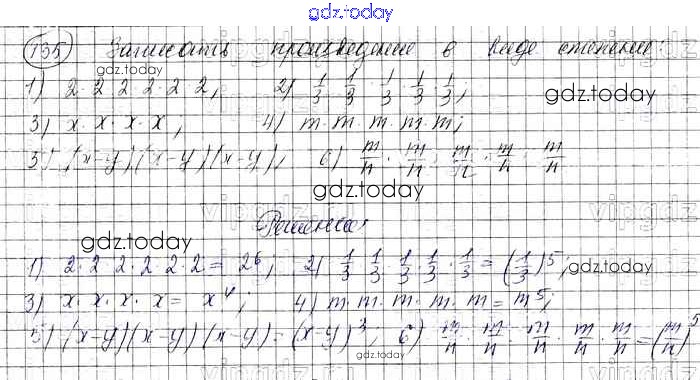 gdz.today
135) Записать произведение в виде степени:
1) 2·2·2·2·2·2; 2) 1/3·1/3·1/3·1/3·1/3;
gdz.today
gdz.today
3) x·x·x·x; 4) m·m·m·m·m;
5) (x-y)(x-y)(x-y); 6) m/n·m/n·m/n·m/n·m/n
gdz.today
Решение
gdz.today
1) 2·2·2·2·2·2 = 2⁶; 2) 1/3·1/3·1/3·1/3·1/3 = (1/3)⁵;
gdz.today
3) x·x·x·x = x⁴; 4) m·m·m·m·m = m⁵;
5) (x-y)(x-y)(x-y) = (x-y)³; 6) m/n·m/n·m/n·m/n·m/n = (m/n)⁵
gdz.today